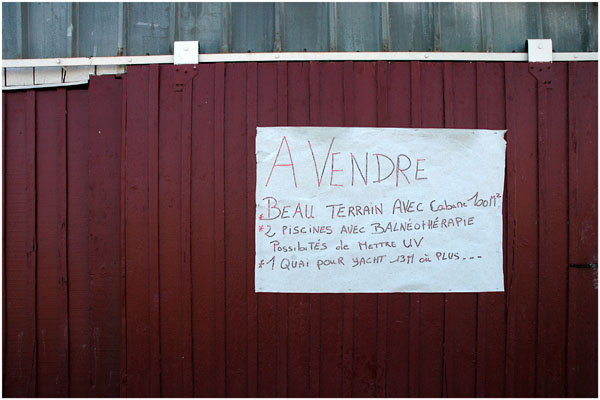 A VENDRE
* BEAU TERRAIN AVEC Cabane 100M²
* 2 PISCINES AVEC BALNÉOTHÉRAPIE
POSSIBITÉS de METTRE UV
* 1 QUAI POUR YACHT _13M où PLUS---